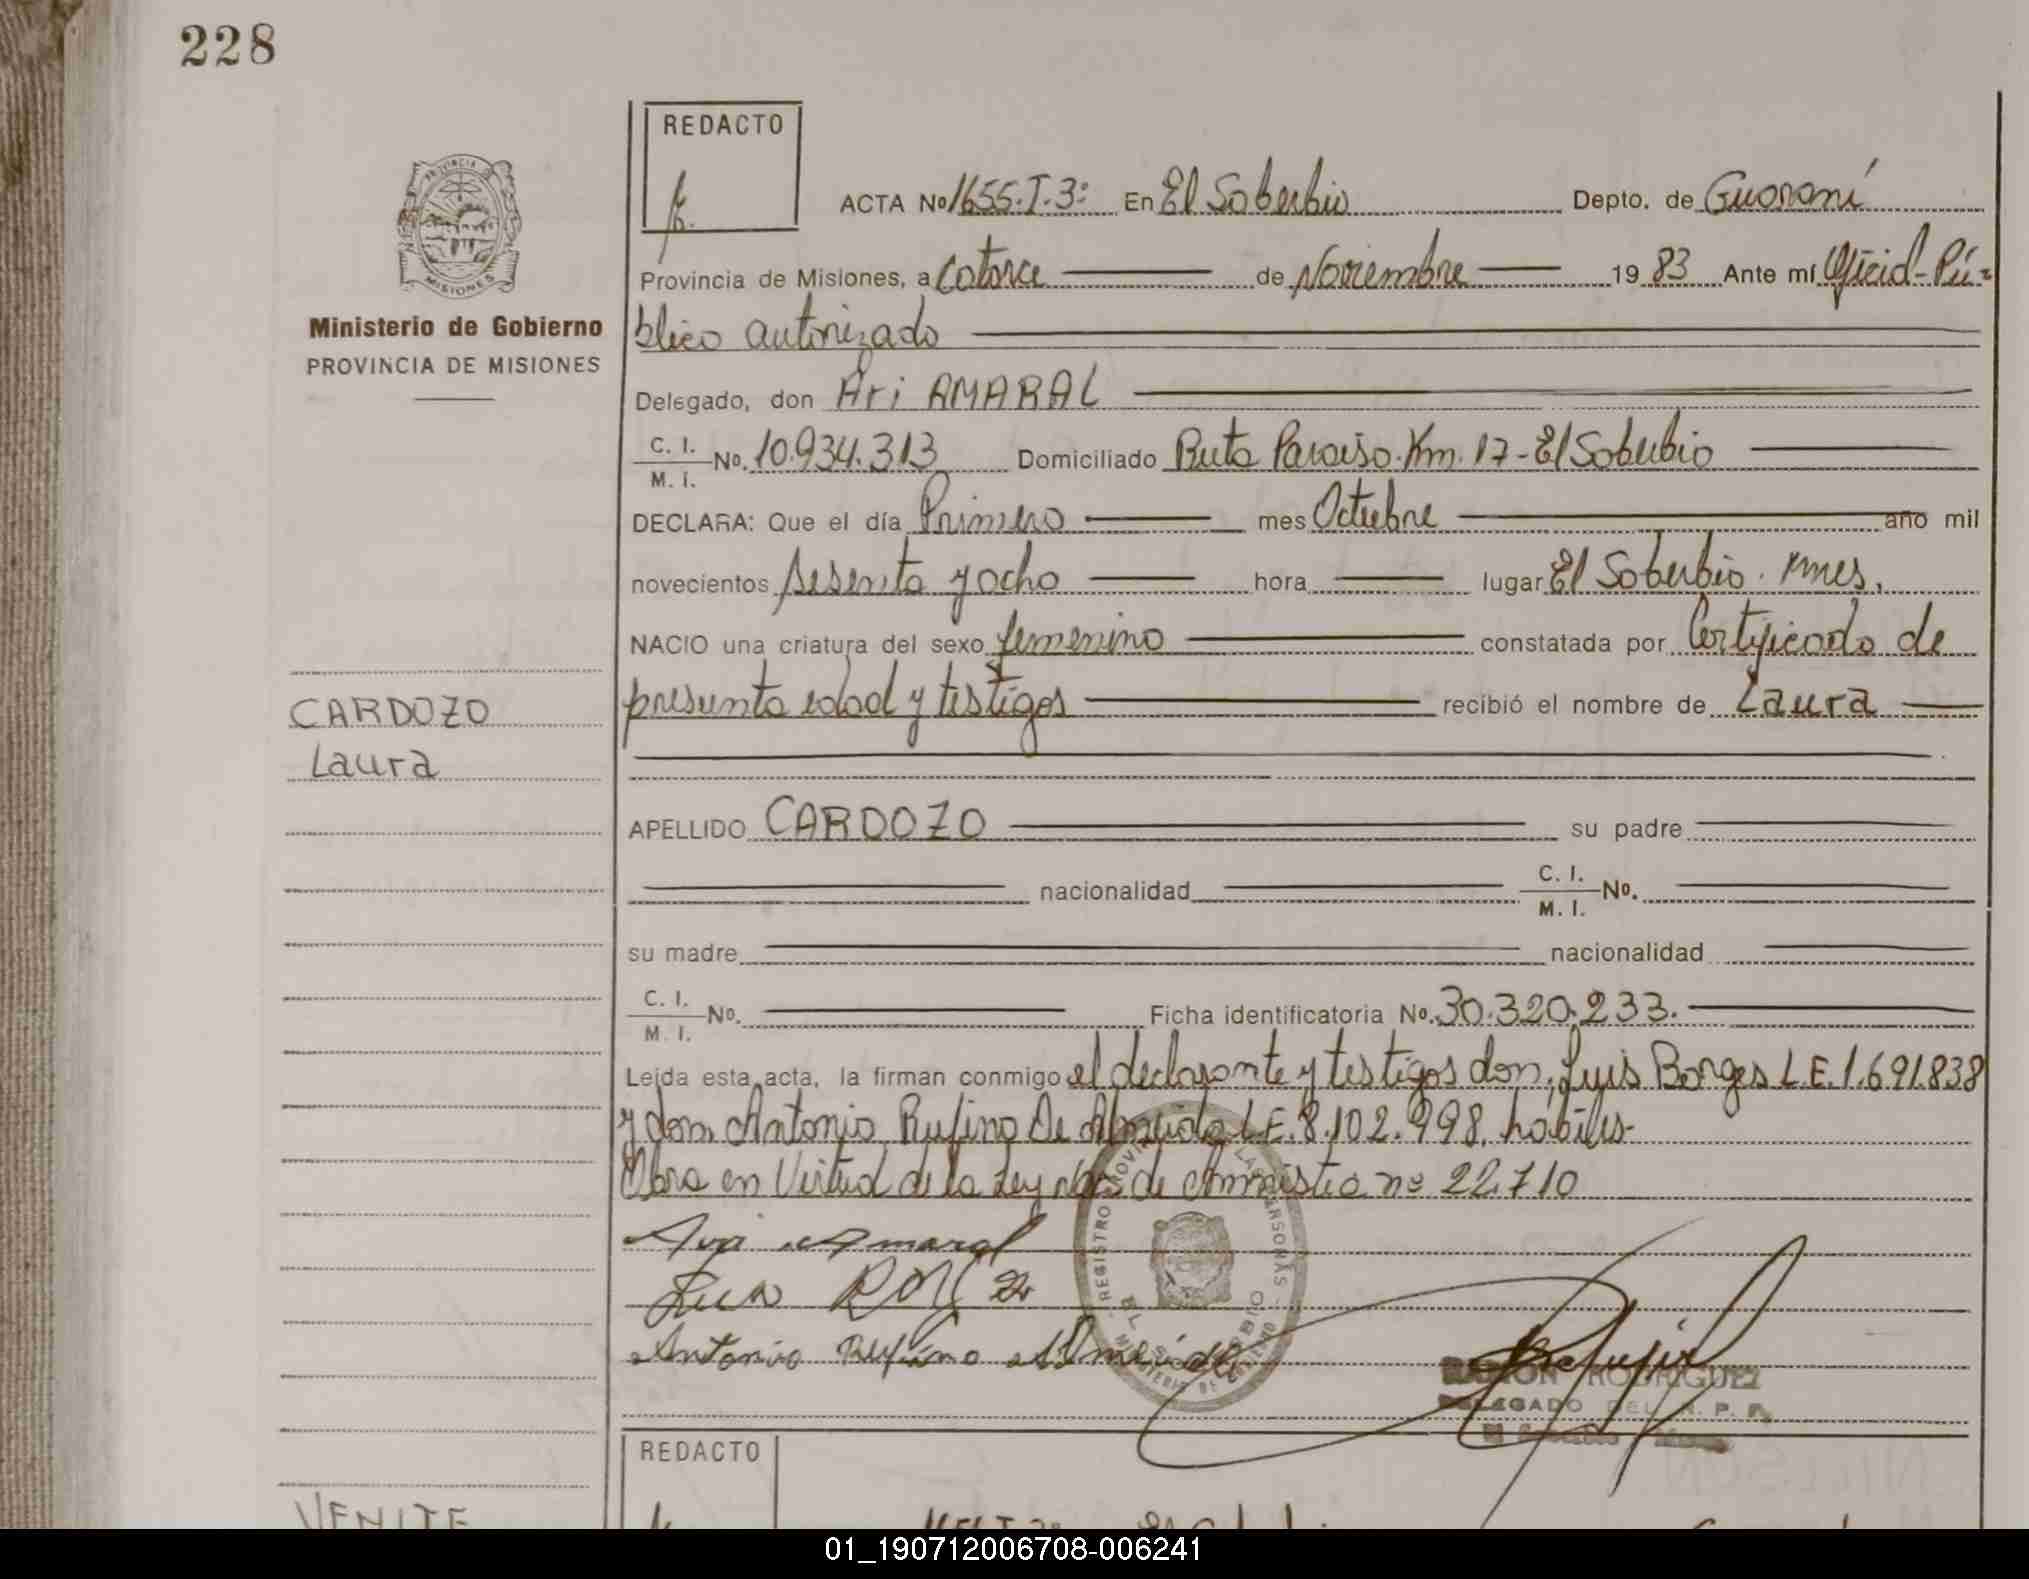 228
REDACTO
ACTA No 1655.T.3º En El Soberbio Depto. de Guaraní
Provincia de Misiones, a Catorce de Noviembre 19 83 Ante mí Oficial Pú-
blico autorizado
Ministerio de Gobierno
PROVINCIA DE MISIONES
Delegado, don Ari AMARAL
C. I.
M. I. No. 10.934.313 Domiciliado Ruta Paraiso. Km. 17 - El Soberbio
DECLARA: Que el día Primero mes Octubre año mil
novecientos sesenta y ocho hora lugar El Soberbio. Mnes.
NACIO una criatura del sexo femenino constatada por Certificado de
presunta edad y testigos recibió el nombre de Laura
CARDOZO
Laura
APELLIDO CARDOZO su padre
nacionalidad C. I.
M. I. No.
su madre nacionalidad
C. I.
M. I. No. Ficha identificatoria No. 30.320.233.
Leida esta acta, la firman conmigo el declarante y testigos don, Luis Borges L.E. 1.691.838
y don Antonio Rufino De Almeida L.E. 8.102.998. hábiles-
Obra en Virtud de la Ley de Amnistia nº 22.710
Ari Amaral
Luis
Antonio Rufino Almeida
REGISTRO PROVINCIAL DE LAS PERSONAS
EL SOBERBIO
MINISTERIO DE GOBIERNO
RAMON RODRIGUEZ
DELEGADO DEL R. P. P.
REDACTO
01_190712006708-006241